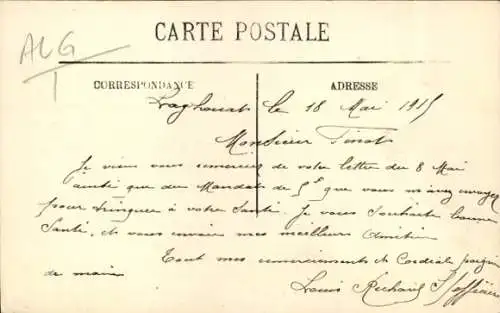 ALG
CARTE POSTALE
CORRESPONDANCE
ADRESSE
Laghouat le 18 Mai 1915
Monsieur Tinot
Je viens vous remercier de votre lettre du 8 Mai
ainsi que du Mandat de 5f que vous m'avez envoyer
pour trinquer à votre Santé. Je vous Souhaite bonne
Santé, et vous envoie mes meilleurs Amitiés
Tout mes remerciements et Cordiale poignée
de main
Louis Richard